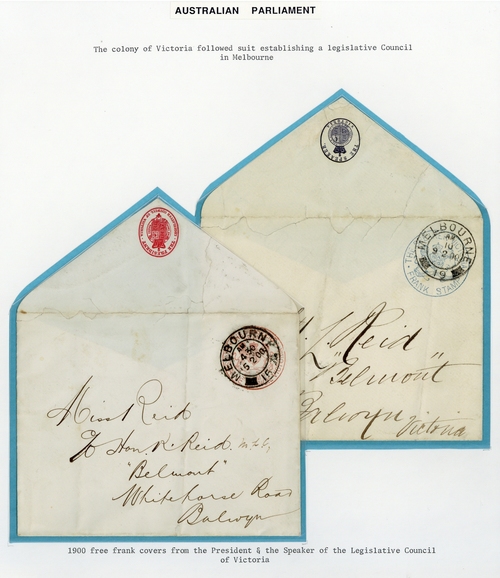 AUSTRALIAN PARLIAMENT
The colony of Victoria followed suit establishing a legislative Council
in Melbourne
THE SPEAKER
MELBOURNE
10
9 2 00
19
FRANK STAMP
Reid
"Belmont"
Balwyn
Victoria
MELBOURNE
AM
4 30
5 2 00
Miss Reid
To Hon. R. Reid. M.L.C.
"Belmont"
Whitehorse Road
Balwyn
1900 free frank covers from the President & the Speaker of the Legislative Council
of Victoria